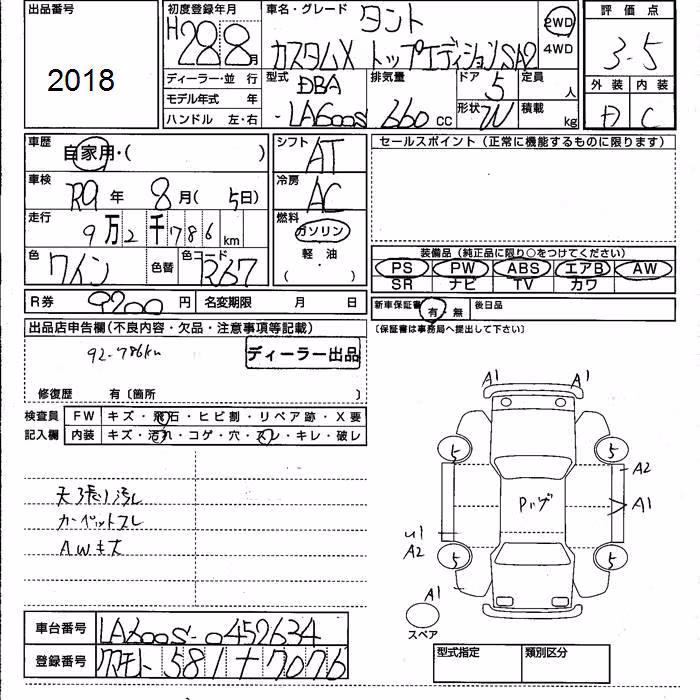 出品番号
2018
初度登録年月
H28 8月
車名・グレード
タント
カスタムX トップエディションSA2
2WD
4WD
評価点
3.5
外装 内装
D C
ディーラー・並行
モデル年式 年
ハンドル 左・右
型式
DBA
-LA600S
排気量
660cc
ドア
5
形状
定員
人
積載
kg
車歴
自家用・( )
車検
R9年 8月(5日)
走行
9万2千786km
色
ワイン
色替
色コード
R67
R券
9200円
名変期限 月 日
シフト
AT
冷房
AC
燃料
ガソリン
軽油
( ・ )
セールスポイント(正常に機能するものに限ります)
装備品(純正品に限り○をつけてください)
PS PW ABS エアB AW
SR ナビ TV カワ
新車保証書 有・無 後日品
〔保証書は事務局へ提出して下さい〕
出品店申告欄(不良内容・欠品・注意事項等記載)
92-786km
ディーラー出品
修復歴 有〔箇所 〕
検査員 FW キズ・飛石・ヒビ割・リペア跡・X要
記入欄 内装 キズ・汚れ・コゲ・穴・スレ・キレ・破レ
天張り汚レ
カーペットスレ
AWキズ
A1 A1
5 5
A2
A1
Pレゲ
U1
A2
5 5
A1
スペア
車台番号 LA600S-0452634
登録番号
581 + 7076
型式指定 類別区分